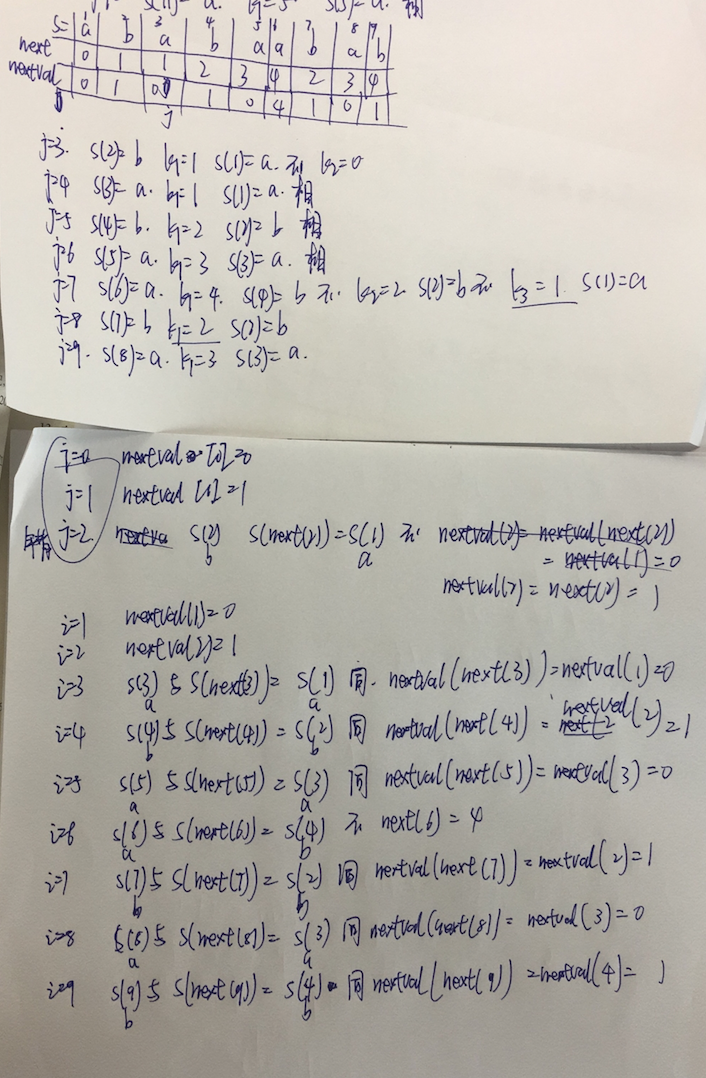 S(1)=a. k=5 S(5)=a. 相
1 2 3 4 5 6 7 8 9
S= a b a b a a b a b
next 0 1 1 2 3 4 2 3 4
nextval 0 1 0 1 0 4 1 0 1
j
j=3. S(2)=b k1=1 S(1)=a. 不 k2=0
j=4 S(3)=a. k1=1 S(1)=a. 相
j=5 S(4)=b. k1=2 S(2)=b 相
j=6 S(5)=a. k1=3 S(3)=a. 相
j=7 S(6)=a. k1=4. S(4)=b 不. k2=2 S(2)=b 不 k3=1. S(1)=a
j=8 S(7)=b k1=2 S(2)=b
j=9. S(8)=a. k1=3 S(3)=a.
j=0 nextval [0]=0
j=1 nextval [1]=1
j=2 nextva S(2) S(next(2))=S(1) 不 nextval(2)=nextval(next(2))
b a =nextval(1)=0
nextval(2)=next(2)=1
i=1 nextval(1)=0
i=2 nextval2)=1
i=3 S(3)与S(next(3))=S(1) 同. nextval(next(3))=nextval(1)=0
a a
i=4 S(4)与S(next(4))=S(2) 同 nextval(next(4))=next(2 nextval(2)=1
b b
i=5 S(5)与S(next(5))=S(3) 同 nextval(next(5))=nextval(3)=0
a a
i=6 S(6)与S(next(6))=S(4) 不 next(6)=4
a b
i=7 S(7)与S(next(7))=S(2) 同 nextval(next(7))=nextval(2)=1
b b
i=8 S(8)与S(next(8))=S(3) 同 nextval(next(8))=nextval(3)=0
a a
i=9 S(9)与S(next(9))=S(4) 同 nextval(next(9))=nextval(4)=1
b b